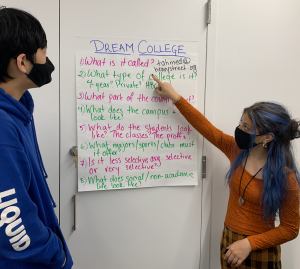 DREAM COLLEGE
1) What is it called?
tahmeda@
bromstreet.org
2) What type of College is it?
4 year? Private?
3) What part of the
4) What does the campus
look like?
5) What do the students look
like? The classes? The profs?
6) What majors/sports/clubs must
it offer?
7) Is it less selective, avg. selective
or very selective?
8) What does social/non-academic
life look like?
LIQUID